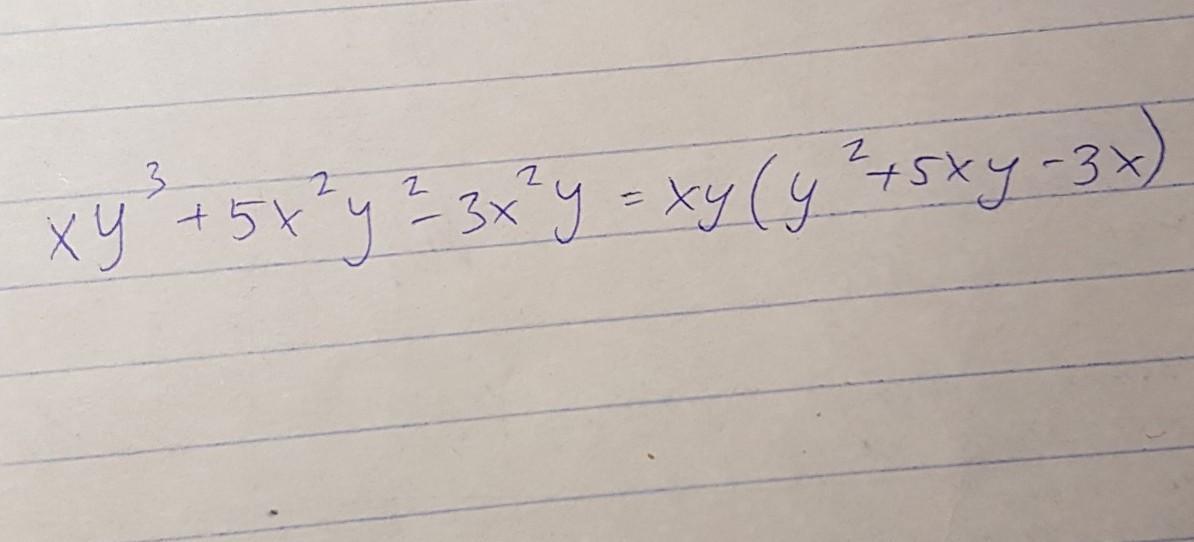 xy³ + 5x²y² - 3x²y = xy(y² + 5xy - 3x)